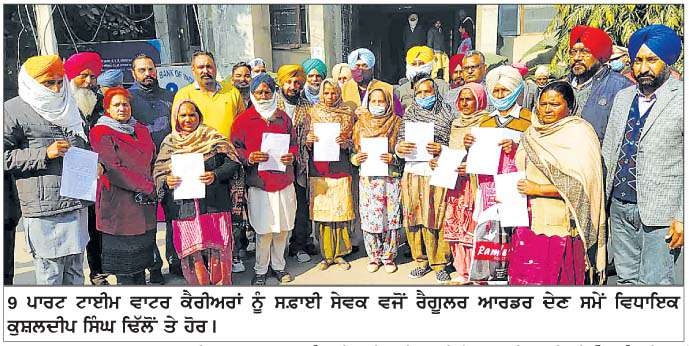 BANK OF
Rama
9 ਪਾਰਟ ਟਾਈਮ ਵਾਟਰ ਕੈਰੀਅਰਾਂ ਨੂੰ ਸਫ਼ਾਈ ਸੇਵਕ ਵਜੋਂ ਰੈਗੂਲਰ ਆਰਡਰ ਦੇਣ ਸਮੇਂ ਵਿਧਾਇਕ
ਕੁਸ਼ਲਦੀਪ ਸਿੰਘ ਢਿੱਲੋਂ ਤੇ ਹੋਰ।